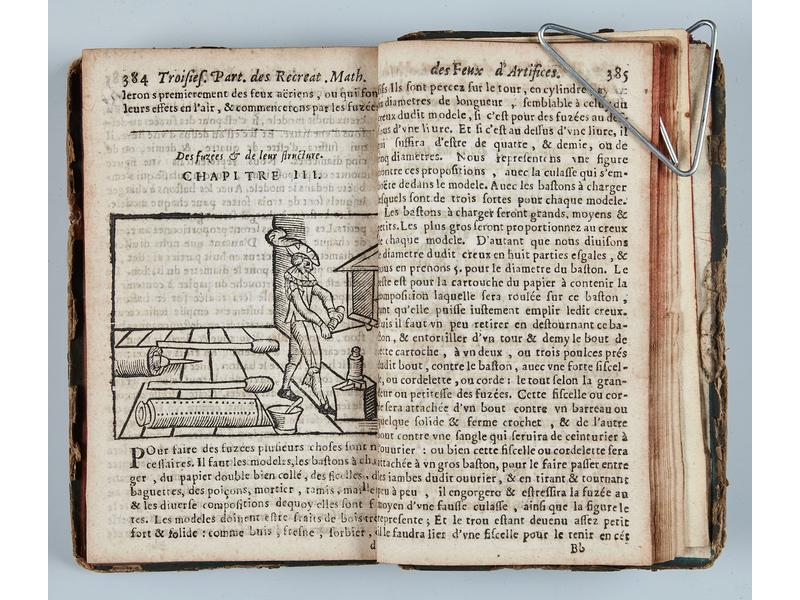 384 Troisies. Part. des Recreat. Math.
lerons premierement des feux aëriens, ou qui font
leurs effets en l'air, & commencerons par les fuzées
Des fuzées & de leur structure.
CHAPITRE III.
POur faire des fuzées plusieurs choses sont n
cessaires. Il faut les modeles, les bastons à cha
ger, du papier double bien collé, des ficelles, d
baguettes, des poiçons, mortier, tamis, maille
& les diverse compositions dequoy elles sont f
tes. Les modeles doiuent estre faits de bois tre
fort & solide: comme buis, fresne, sorbier,
d
des Feux d'Artifices. 385
Ils sont percez sur le tour, en cylindre
diametres de longueur, semblable à celuy du
creux dudit modele, si c'est pour des fuzées au des
sus d'vne liure. Et si c'est au dessus d'vne liure, il
suffira d'estre de quatre, & demie, ou de
nq diametres. Nous representons vne figure
ontre ces propositions, auec la culasse qui s'em-
boëte dedans le modele. Auec les bastons à charger
squels sont de trois sortes pour chaque modele.
Les bastons à charger seront grands, moyens &
etits. Les plus gros seront proportionnez au creux
e chaque modele. D'autant que nous diuisons
e diametre dudit creux en huit parties esgales, &
ous en prenons 5. pour le diametre du baston. Le
este est pour la cartouche du papier à contenir la
omposition laquelle sera roulée sur ce baston,
ant qu'elle puisse iustement emplir ledit creux.
uis il faut vn peu retirer en destournant ce ba-
on, & entortiller d'vn tour & demy le bout de
ette cartoche, à vn deux, ou trois poulces prés
udit bout, contre le baston, auec vne forte fiscel-
e, ou cordelette, ou corde: le tout selon la gran-
eur ou petitesse des fuzées. Cette fiscelle ou cor-
e sera attachée d'vn bout contre vn barreau ou
uelque solide & ferme crochet, & de l'autre
out contre vne sangle qui seruira de ceinturier à
'ouurier: ou bien cette fiscelle ou cordelette sera
attachée à vn gros baston, pour le faire passer entre
es iambes dudit ouurier, & en tirant & tournant
eu à peu, il engorgera & estressira la fuzée au
moyen d'vne fausse culasse, ainsi que la figure le
represente; Et le trou estant deuenu assez petit
il le faudra lier d'vne fiscelle pour le tenir en cét
Bb